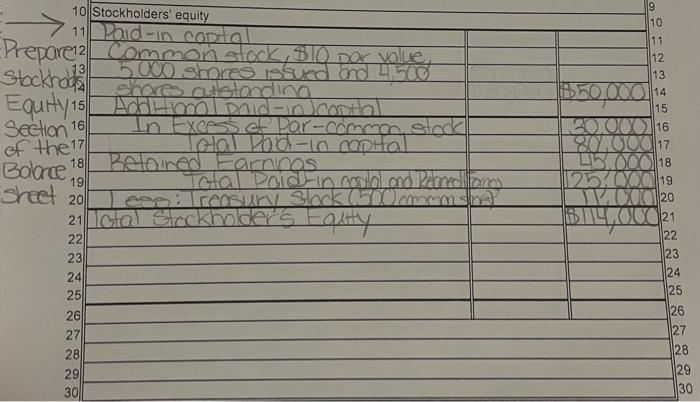 9
10 Stockholders' equity 10
11 Paid-in capital 11
Prepare 12 Common stock, $10 par value, 12
Stockholders 13 5,000 shares issued and 4,500 13
14 shares outstanding $50,000 14
Equity 15 Additional paid-in capital 15
Section 16 In Excess of Par-common stock 30,000 16
of the 17 Total Paid-in capital 80,000 17
Balance 18 Retained Earnings 45,000 18
Sheet 19 Total Paid-in capital and Retained 125,000 19
20 Less: Treasury Stock (500 common 11,000 20
21 Total Stockholder's Equity $114,000 21
22 22
23 23
24 24
25 25
26 26
27 27
28 28
29 29
30 30